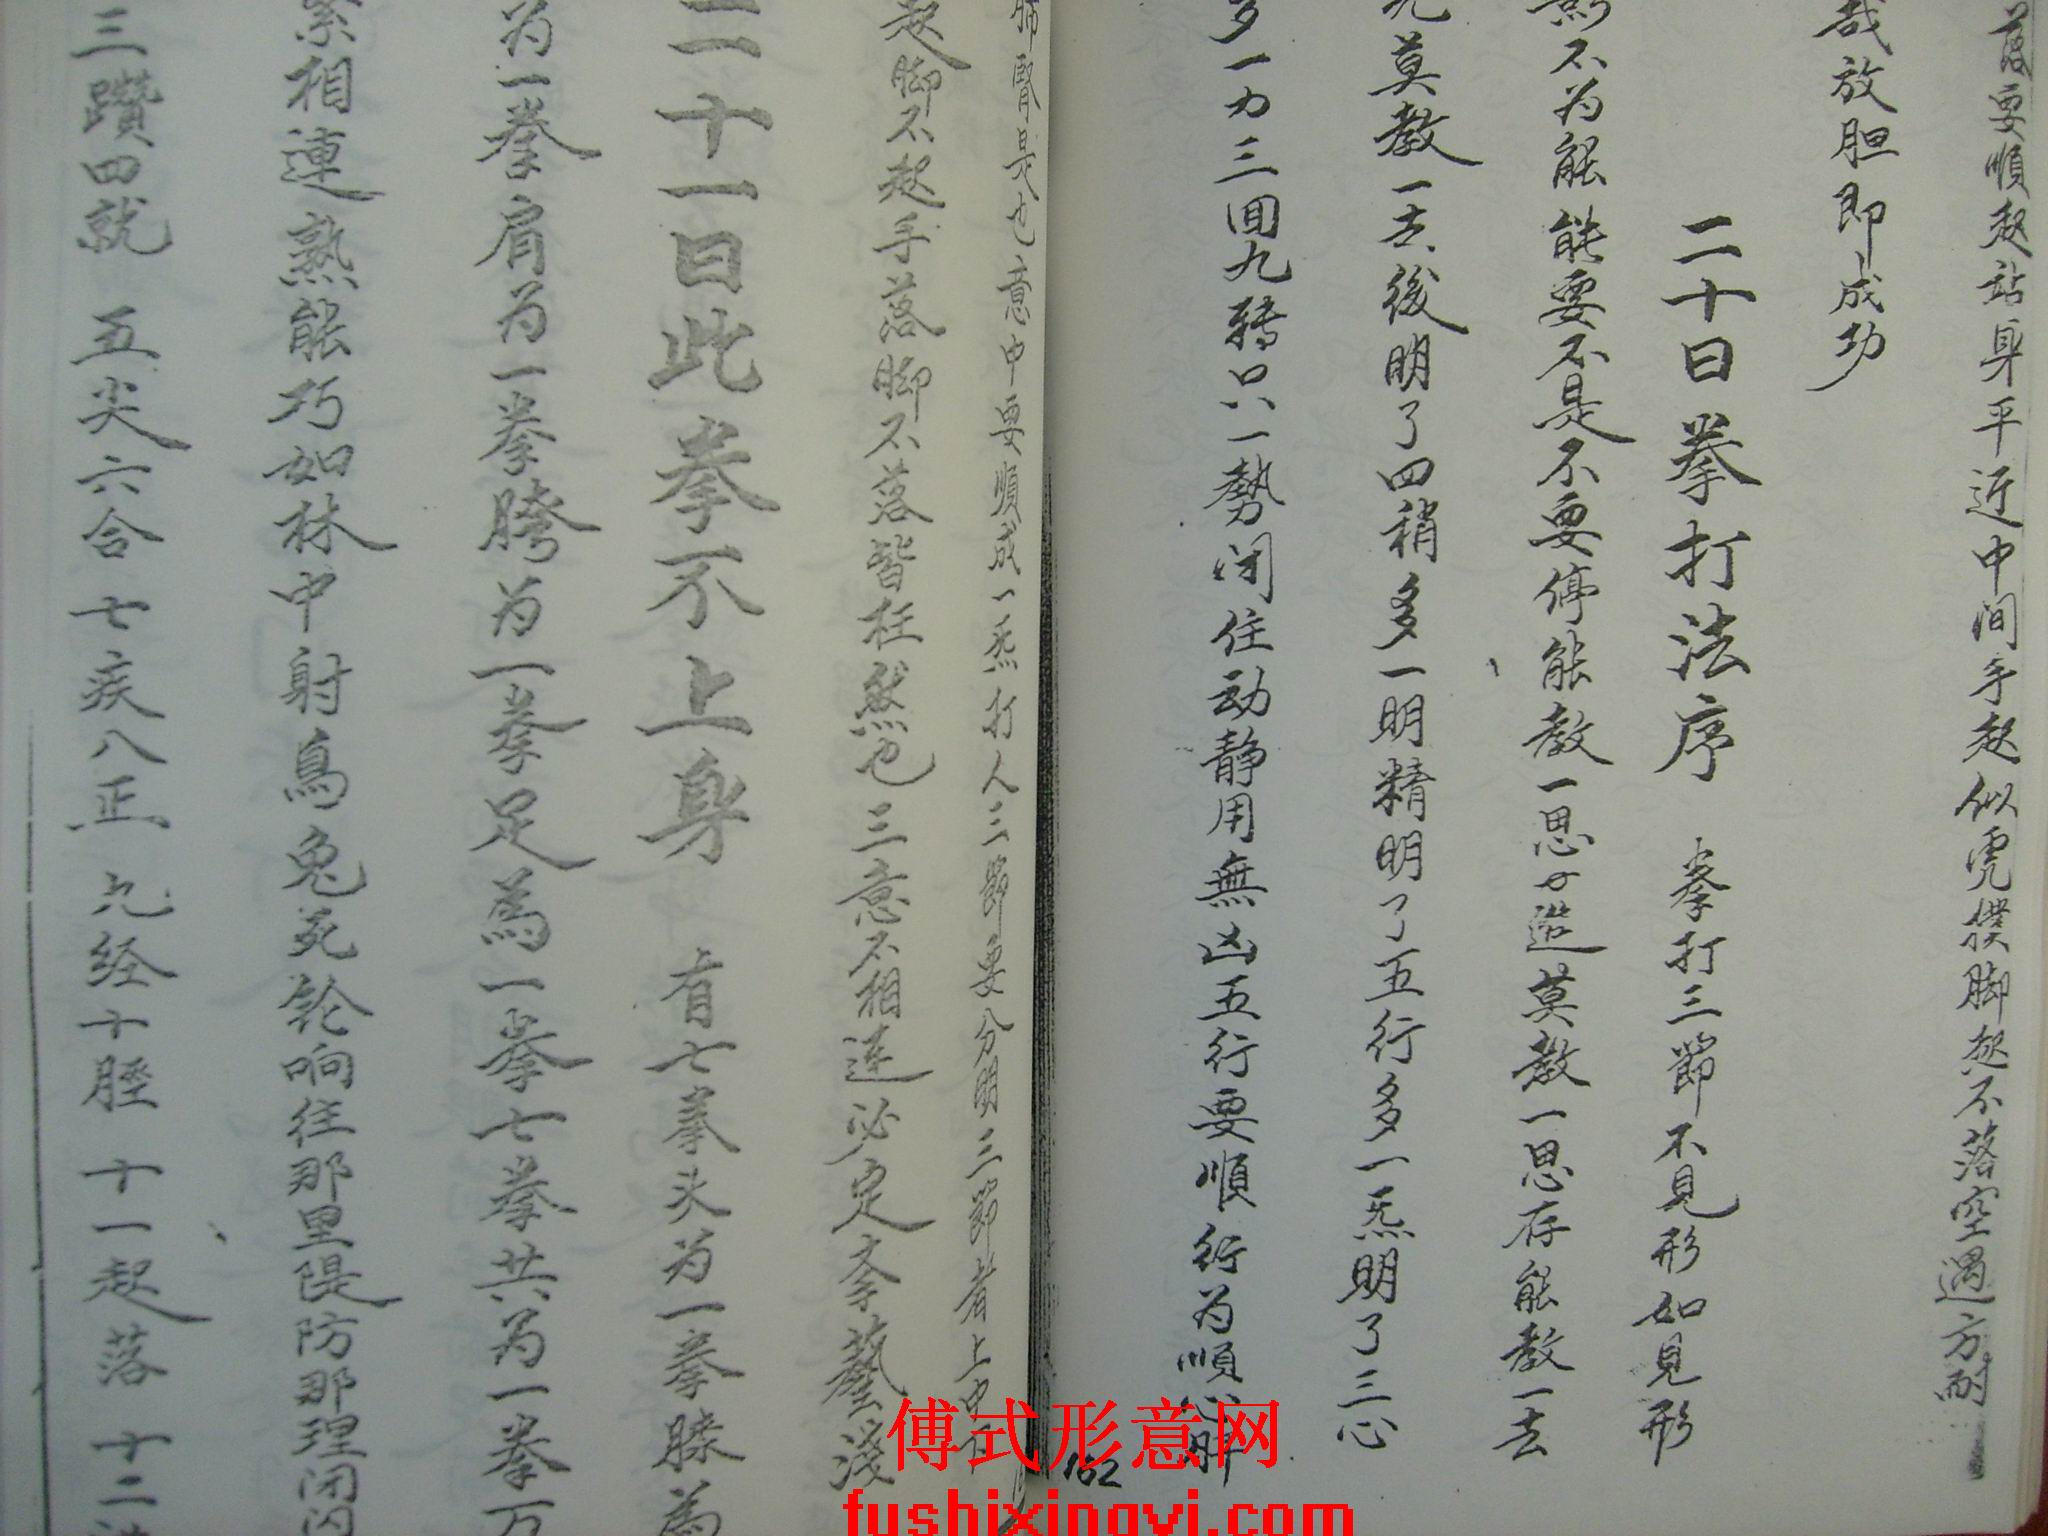 落要順起站身平近中间手起似虎撲脚起不落空遇方耐
哉放胆即成功
二十曰拳打法序 拳打三節不見形如見形
影不为能能要不是不要停能教一思進莫教一思存能教一去
莫教一去後明了四稍多一明精明了五行多一炁明了三心
多一力三回九转只一势闭住动静用無凶五行要順行为順心肝
肺腎是也意中要順成一炁打人三節要分明三節者上中下
起脚不起手落脚不落皆枉然也三意不相连必定李藝淺
二十一曰此拳不上身 有七拳头为一拳膝為
为一拳肩为一拳胯为一拳足為一拳七拳共为一拳万
紧相連熟能巧如林中射鳥兔死铃响往那里隄防那理闭闪
三躦四就 五尖六合七疾八正九经十脛十一起落十二法
162
傅式形意网
fushixingyi.com